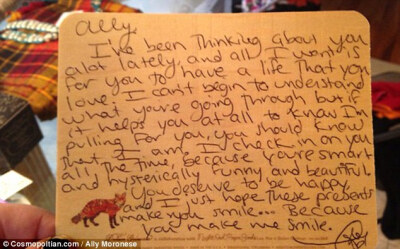 Ally,
I've been thinking about you
alot lately, and all I want is
for you to have a life that you
love. I can't begin to understand
what you're going through but if
it helps you at all to know I'm
pulling for you, you should know
that. I am. I check in on you
all the time, because you're smart
and hysterically funny and beautiful.
You deserve to be happy
and I just hope these presents
make you smile... Because
you make me smile.
© Cosmopolitan.com / Ally Moronese